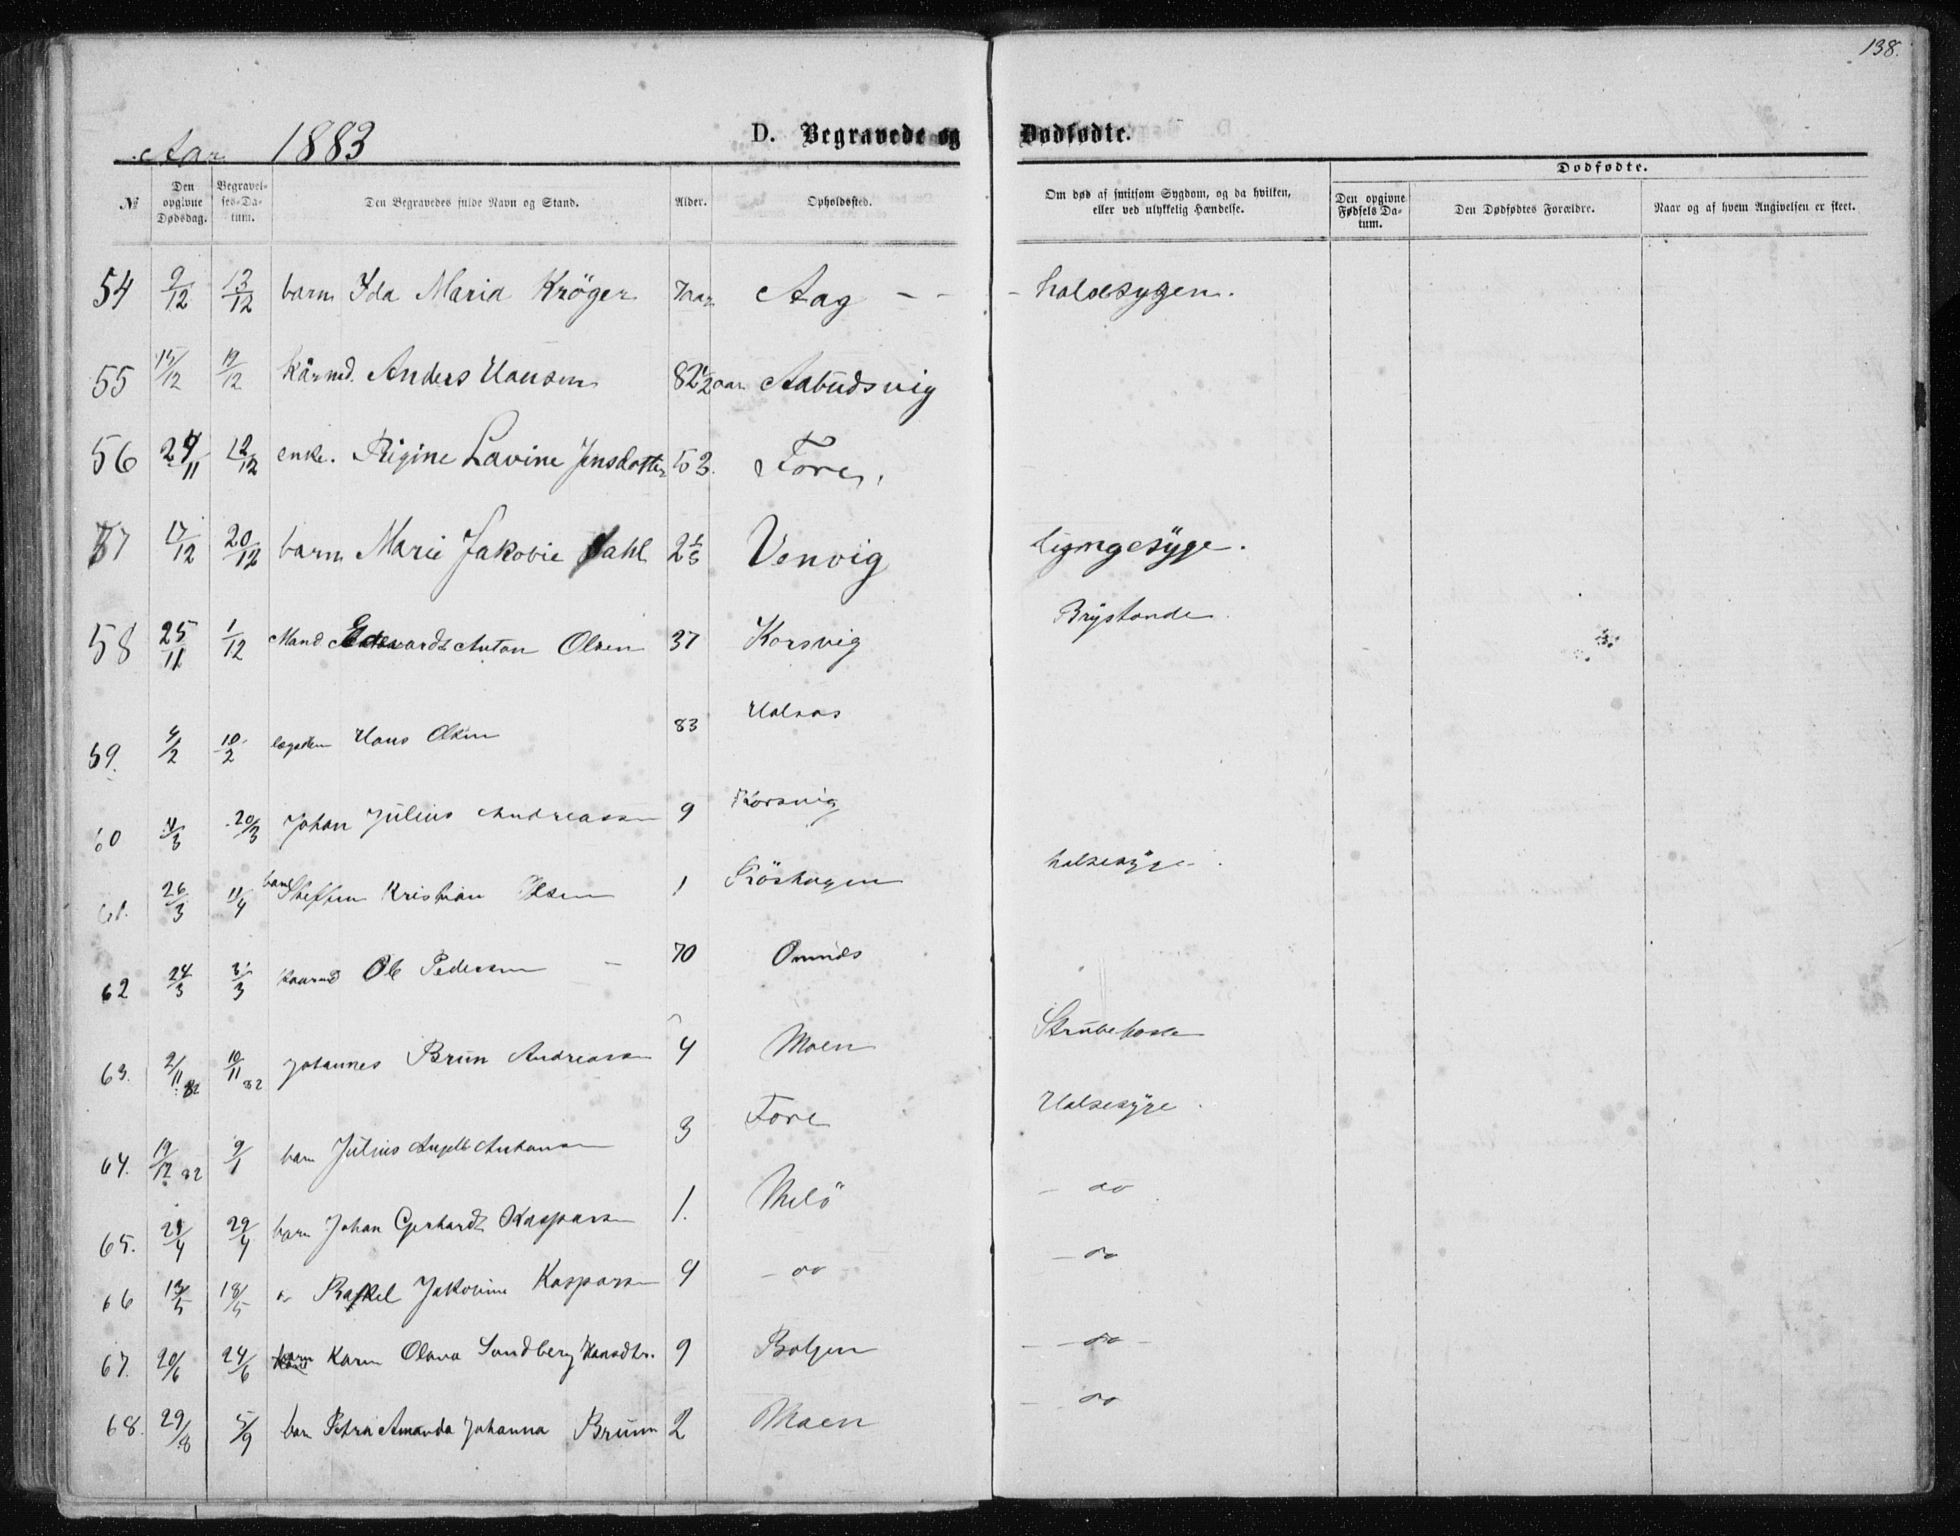 138.
Aar 1883
D. Begravede og Dødfødte.
Dødfødte.
№ Den opgivne Dødsdag. Begravelses-Datum. Den Begravedes fulde Navn og Stand. Alder. Opholdssted. Om død af smitsom Sygdom, og da hvilken, eller ved ulykkelig Hændelse. Den opgivne Fødsels Datum. Den Dødfødtes Forældre. Naar og af hvem Angivelsen er skeet.
54 9/12 13/12 barn Ida Maria Kröger 7 aar Aag - - - halsesygen.
55 15/12 19/12 Kårmd. Anders Hansen 82 1/2 aar Aabudsvig
56 29/11 12/12 enke. Rigine Lavine Jensdatter 53. Fore.
57 17/12 20/12 barn Marie Jakovie Dahl 2 1/3 Venvig
58 25/11 1/12 Mand Edvardt Anton Olsen 37 Korsvig Brystonde
59. 4/2 10/2 lægdem Hans Olsen 83 Halsaas
60 4/3 20/3 Johan Julius Andreassen 9 Korsvig
61. 26/3 11/4 barn Steffen Kristian Olsen 1 Röshagen halsesyge
62 24/3 31/3 Kaarmd Ole Pedersen - 70
63. 2/11 82 10/11 82 Johannes Brun Andreassen 4 Moen Strubehoste
64. 19/12 82 9/1 barn Julius Angell Antonsen 3 Fore Halsesyge
65. 21/4 29/4 barn Johan Gerhardt Kaspersen 1. Melö - do
66 13/5 18/5 " Rakel Jakovine Kaspersen 4 - do - do
67. 20/6 24/6 barn Karen Olava Sundberg Hansdtr. 9 Bolgen - do -
68. 29/8 5/9 barn Petra Amanda Johanna Bruun 2 Moen - do